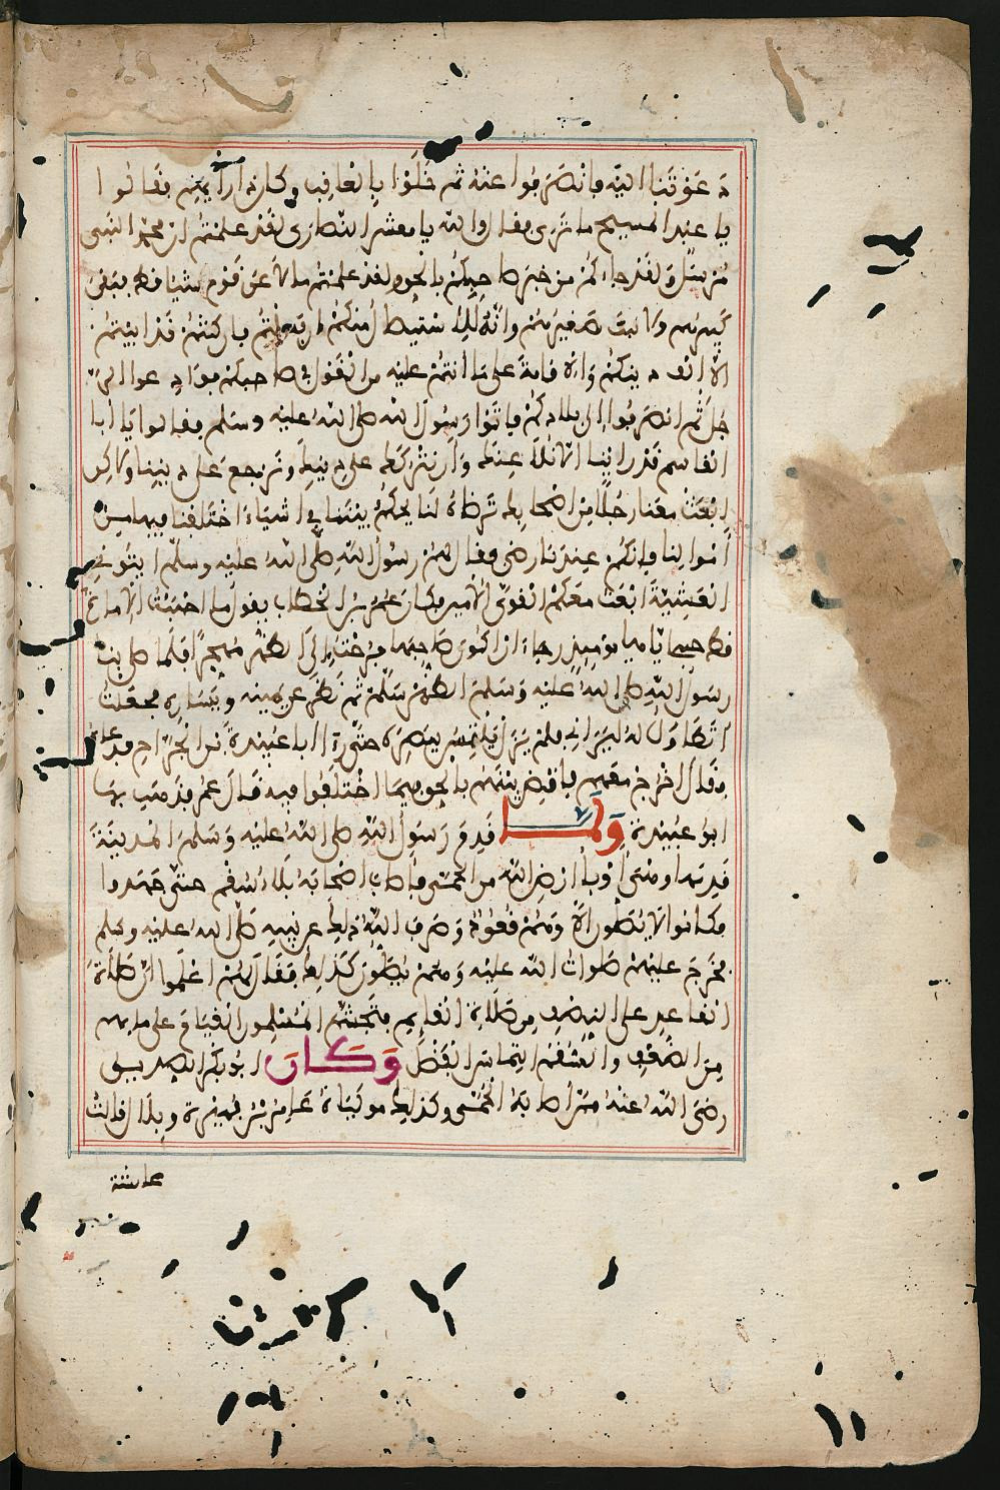 دعوتنا اليه فانصرفوا عنه ثم خلوا بالعاقب وكان ذا رأيهم فقالوا
يا عبد المسيح ما ترى فقال والله يا معشر النصارى لقد علمتم ان محمدا لنبي
مرسل ولقد جاءكم من خبر صاحبكم بالحق ولقد علمتم ما لاعن قوم نبيا قط فبقي
كبيرهم ولا نبت صغيرهم وانه للاستيصال منكم ان فعلتم فان كنتم قد ابيتم
الا الف دينكم والاقامة على ما انتم عليه من القول في صاحبكم فوادعوا الر
جل ثم انصرفوا الى بلادكم فاتوا رسول الله صلى الله عليه وسلم فقالوا يا ابا
القاسم قد راينا الا نلاعنك وان نتركك على دينك ونرجع على ديننا ولاكن
ابعث معنا رجلا من اصحابك ترضاه لنا يحكم بيننا في اشياء اختلفنا فيها من
اموالنا فانكم عندنا رضى فقال لهم رسول الله صلى الله عليه وسلم ايتوني
العشية ابعث معكم القوي الامين فكان عمر بن الخطاب يقول ما احببت الامارة
قط حبي اياها يومئذ رجاء ان اكون صاحبها فرحت الى الظهر مهجرا فلما صلى بنا
رسول الله صلى الله عليه وسلم الظهر سلم ثم نظر عن يمينه ويساره فجعلت
اتطاول له ليراني فلم يزل يلتمس ببصره حتى رأى ابا عبيدة بن الجراح فدعاه
فقال اخرج معهم فاقض بينهم بالحق فيما اختلفوا فيه قال عمر فذهب بها
ابو عبيدة ولما قدم رسول الله صلى الله عليه وسلم المدينة
قدمها وهي اوبأ ارض الله من الحمى فاصاب اصحابه بلاء وسقم حتى جهدوا
فكانوا لا يصلون الا وهم قعود وصرف الله ذلك عن نبيه صلى الله عليه وسلم
فخرج عليهم صلوات الله عليه وهم يصلون كذلك فقال لهم اعلموا ان صلاة
القاعد على النصف من صلاة القايم فتجشم المسلمون القيام على ما بهم
من الضعف والسقم التماس الفضل وكان ابو بكر الصديق
رضي الله عنه ممن اصابته الحمى وكذلك مولياه عامر بن فهيرة وبلال قالت
عائشة